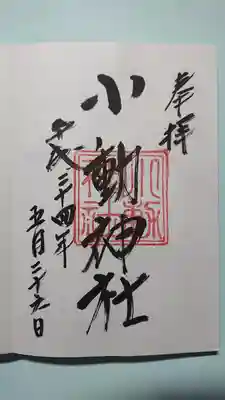 奉拝
小動神社
平成二十四年
五月二十九日